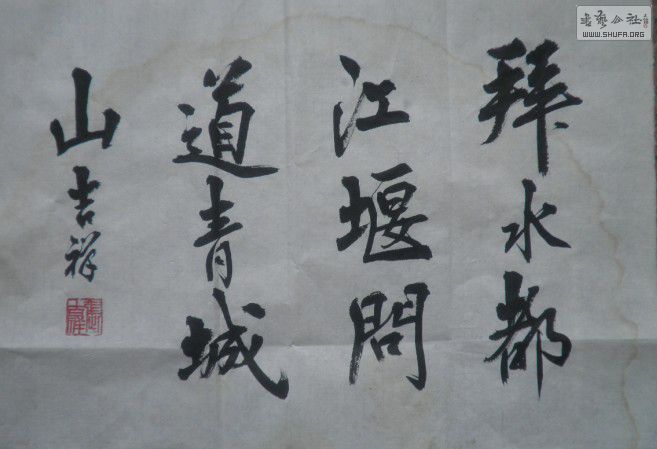 拜水都
江堰問
道青城
山吉祥
书艺公社
WWW.SHUFA.ORG